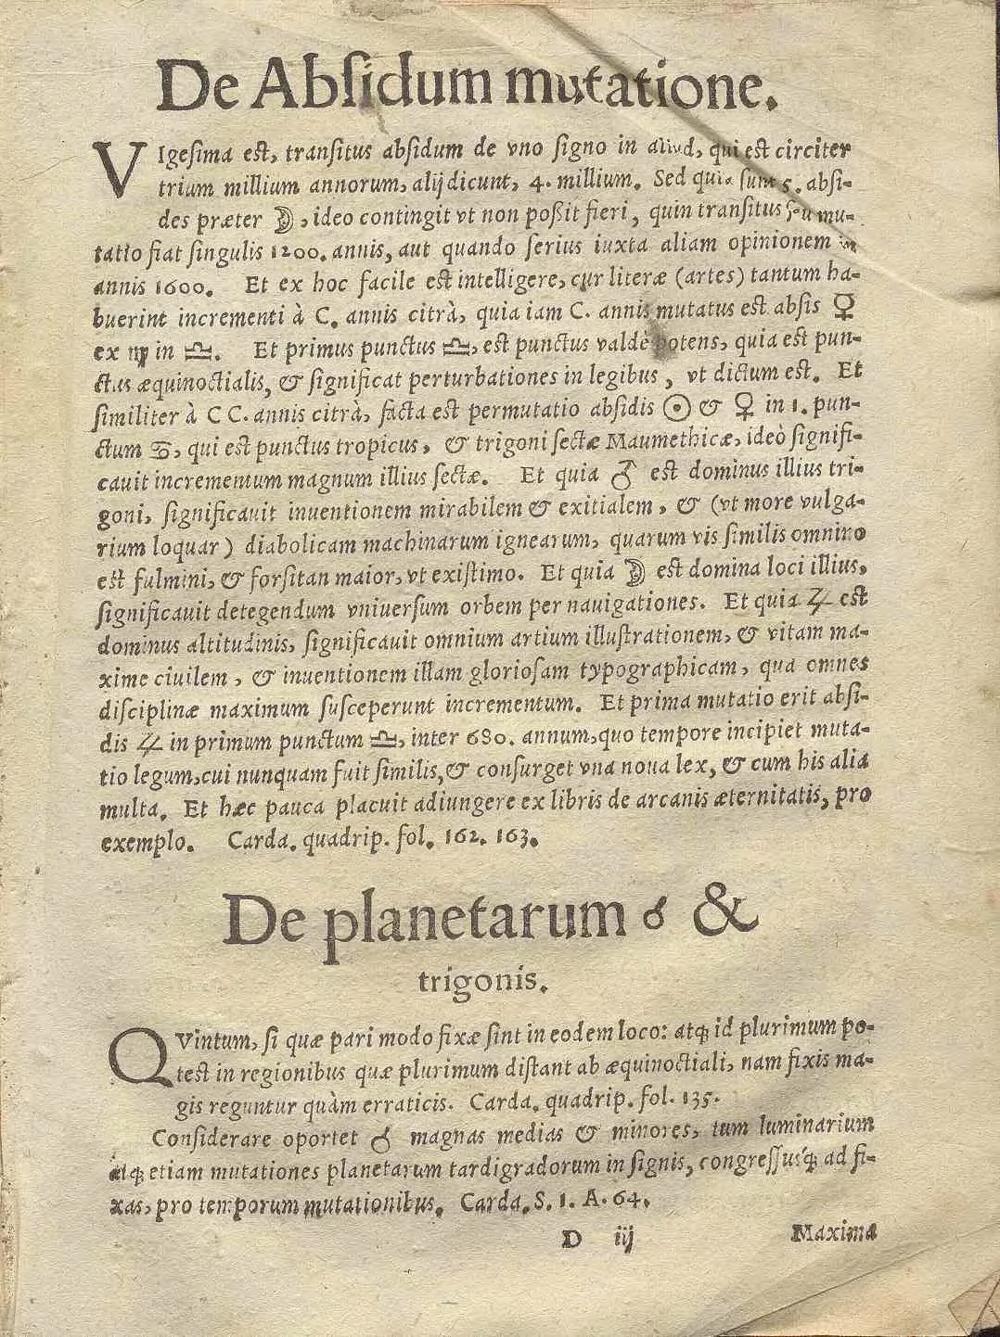 De Abſidum mutatione.
VIgeſima eſt, tranſitus abſidum de vno ſigno in aliud, qui eſt circiter
trium millium annorum, alij dicunt, 4. millium. Sed quia ſunt 5. abſi-
des præter ☽, ideo contingit vt non poßit fieri, quin tranſitus ſeu mu-
tatio fiat ſingulis 1200. annis, aut quando ſerius iuxta aliam opinionem in
annis 1600. Et ex hoc facile eſt intelligere, cur literæ (artes) tantum ha-
buerint incrementi à C. annis citrà, quia iam C. annis mutatus eſt abſis ☿
ex ♍ in ♎. Et primus punctus ♎, eſt punctus valdè potens, quia eſt pun-
ctus æquinoctialis, & ſignificat perturbationes in legibus, vt dictum eſt. Et
ſimiliter à CC. annis citrà, facta eſt permutatio abſidis ☉ & ♀ in 1. pun-
ctum ♋, qui eſt punctus tropicus, & trigoni ſectæ Maumethicæ, ideò ſignifi-
cauit incrementum magnum illius ſectæ. Et quia ♂ eſt dominus illius tri-
goni, ſignificauit inuentionem mirabilem & exitialem, & (vt more vulga-
rium loquar) diabolicam machinarum ignearum, quarum vis ſimilis omnino
eſt fulmini, & forſitan maior, vt exiſtimo. Et quia ☽ eſt domina loci illius,
ſignificauit detegendum vniuerſum orbem per nauigationes. Et quia ♃ eſt
dominus altitudinis, ſignificauit omnium artium illuſtrationem, & vitam ma-
xime ciuilem, & inuentionem illam glorioſam typographicam, qua omnes
diſciplinæ maximum ſuſceperunt incrementum. Et prima mutatio erit abſi-
dis ♃ in primum punctum ♎, inter 680. annum, quo tempore incipiet muta-
tio legum, cui nunquam fuit ſimilis, & conſurget vna noua lex, & cum his alia
multa. Et hæc pauca placuit adiungere ex libris de arcanis æternitatis, pro
exemplo. Carda. quadrip. fol. 162. 163.
De planetarum ☌ &
trigonis.
QVintum, ſi quæ pari modo fixæ ſint in eodem loco: atq; id plurimum po-
teſt in regionibus quæ plurimum diſtant ab æquinoctiali, nam fixis ma-
gis reguntur quàm erraticis. Carda. quadrip. fol. 135.
Conſiderare oportet ☌ magnas medias & minores, tum luminarium
atq; etiam mutationes planetarum tardigradorum in ſignis, congreſſusq; ad fi-
xas, pro temporum mutationibus. Carda. S. 1. A. 64.
D iij Maxima